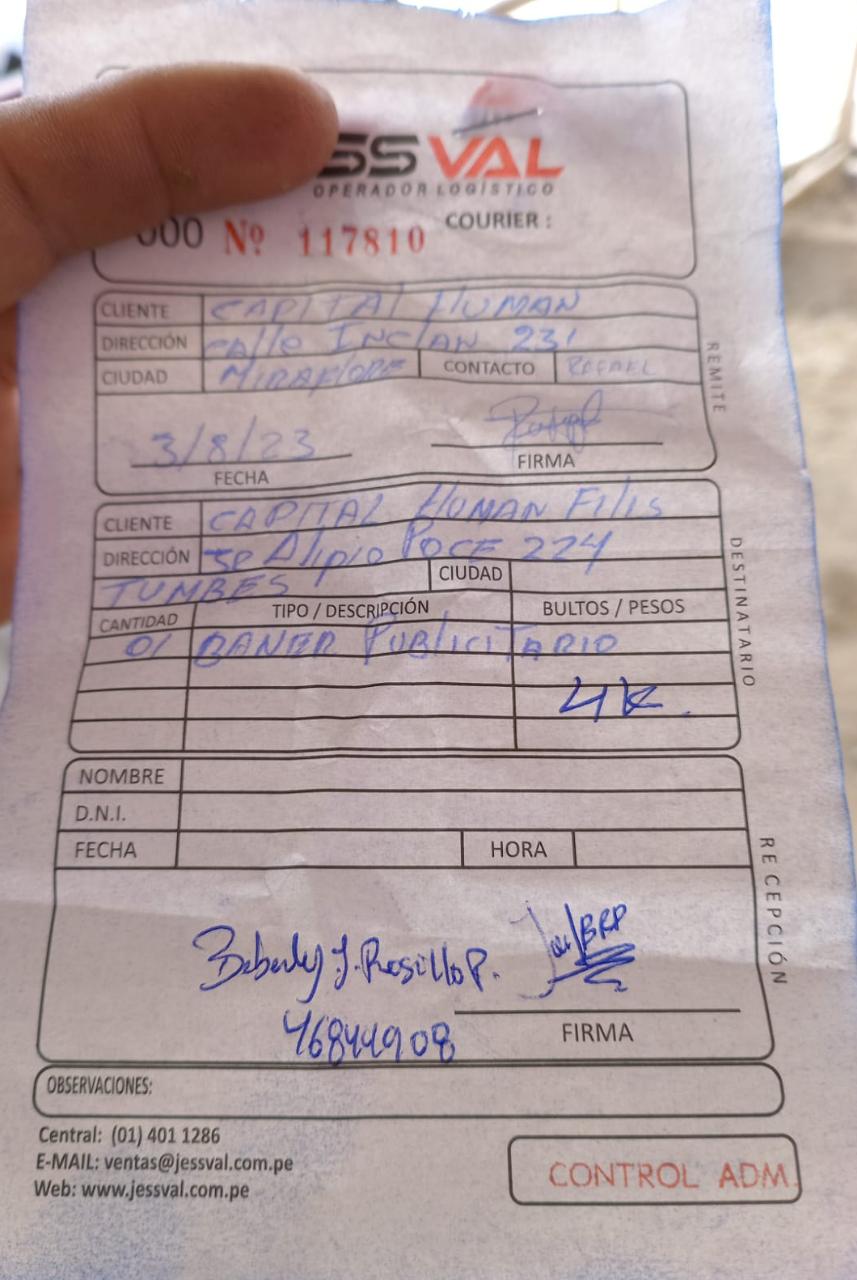 SS VAL
OPERADOR LOGÍSTICO
000 Nº 117810 COURIER :
CLIENTE CAPITAL HUMAN
DIRECCIÓN CAllE INCLAN 231
CIUDAD MIRAFLORE CONTACTO RAFAEL
REMITE
3/8/23
FECHA FIRMA
CLIENTE CAPITAL HUMAN FIlIS
DIRECCIÓN Alipio POCE 224
TUMBES CIUDAD
CANTIDAD TIPO / DESCRIPCIÓN BULTOS / PESOS
01 BANER PUBLICITARIO
4K.
DESTINATARIO
NOMBRE
D.N.I.
FECHA HORA
RECEPCIÓN
J. Rosillo P. BRP
46844908
FIRMA
OBSERVACIONES:
Central: (01) 401 1286
E-MAIL: ventas@jessval.com.pe
Web: www.jessval.com.pe
CONTROL ADM.